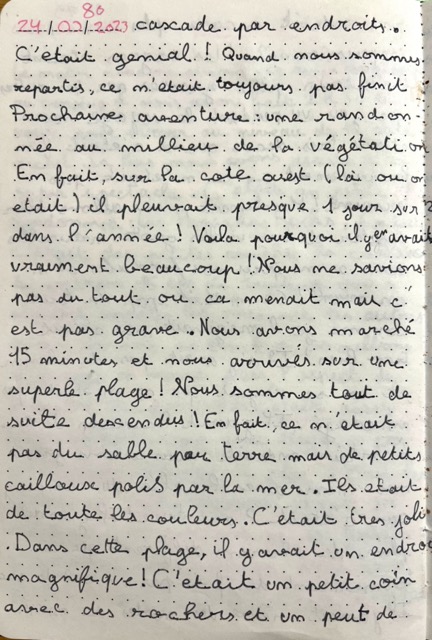 80
24/07/2023 cascade par endroits.
C'était genial ! Quand nous sommes
repartis, ce n'était toujours pas finit
Prochaine aventure : une randon-
née au millieu de la végétation
En fait, sur la cote ouest (là ou on
était) il pleuvait presque 1 jour sur 2
dans l'année ! Voila pourquoi il y en avait
vraiment beaucoup ! Nous ne savions
pas du tout ou ca menait mais c'
est pas grave. Nous avons marché
15 minutes et nous arrivés sur une
superbe plage ! Nous sommes tout de
suite descendus ! En fait, ce n'était
pas du sable par terre mais de petits
cailloux polis par la mer. Ils etait
de toute les couleurs. C'était tres joli
. Dans cette plage, il y avait un endroi
magnifique ! C'était un petit coin
avec des rochers et un peut de